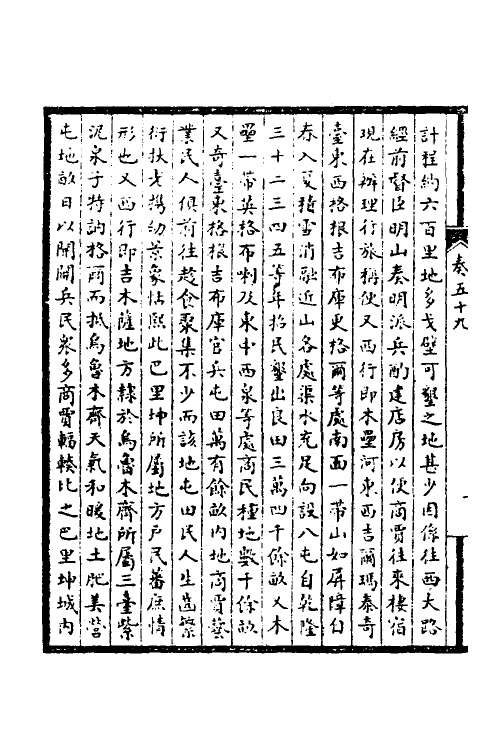 計程約六百里地多戈壁可墾之地甚少因係往西大路
經前督臣明山奏明派兵酌建店房以便商賈往來棲宿
現在辦理行旅稱便又西行即木壘河東西吉爾瑪泰奇
臺東西格根吉布庫更格爾等處南面一帶山如屏障自
春入夏積雪消融近山各處渠水充足向設八屯自乾隆
三十二三四五等年招民墾出良田三萬四千餘畝又木
壘一帶英格布喇及東中西泉等處商民種地數千餘畝
又奇臺東格根吉布庫官兵屯田萬有餘畝內地商賈藝
業民人俱前往趁食聚集不少而該地屯田民人生齒繁
衍扶老攜幼景象恬熙此巴里坤所屬地方戶民蕃庶情
形也又西行即吉木薩地方隸於烏魯木齊所屬三臺紫
泥泉子特訥格爾而抵烏魯木齊天氣和暖地土肥美營
屯地畝日以開闢兵民衆多商賈輻輳比之巴里坤城內
奏五十九
一